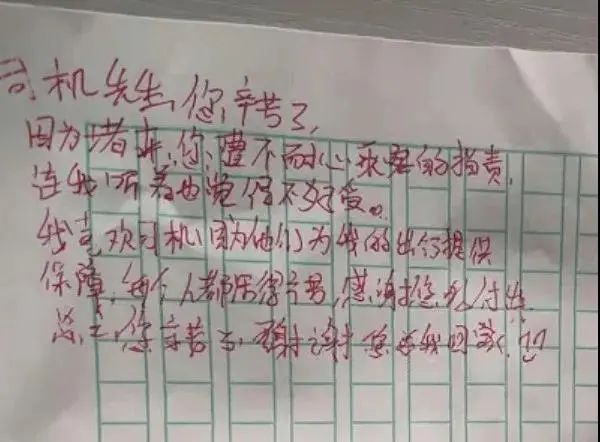 司机先生,您辛苦了,
因为堵车,您遭不耐心乘客的指责,
连我听着也觉得不好受。
我喜欢司机,因为他们为我的出行提供
保障,每个人都不容易,感谢您的付出
总之,您辛苦了,谢谢您送我回家!